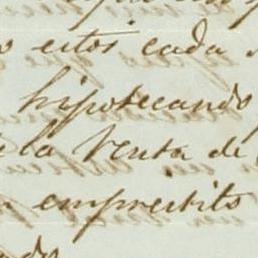 estos cada
hipotecando
la Venta de
empréstito